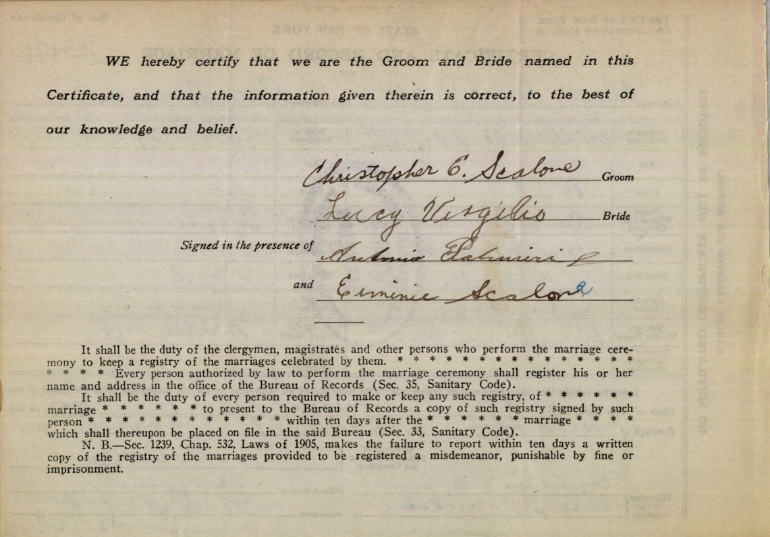 WE hereby certify that we are the Groom and Bride named in this
Certificate, and that the information given therein is correct, to the best of
our knowledge and belief.
Christopher C. Scalone Groom
Lucy Virgilio Bride
Signed in the presence of Antonio Palmieri
and Scalona
It shall be the duty of the clergymen, magistrates and other persons who perform the marriage cere-
mony to keep a registry of the marriages celebrated by them. * * * * * * * * * * * * * * *
* * * * Every person authorized by law to perform the marriage ceremony shall register his or her
name and address in the office of the Bureau of Records (Sec. 35, Sanitary Code).
It shall be the duty of every person required to make or keep any such registry, of * * * * * *
marriage * * * * * * to present to the Bureau of Records a copy of such registry signed by such
person * * * * * * * * * * * * within ten days after the * * * * * * marriage * * * *
which shall thereupon be placed on file in the said Bureau (Sec. 33, Sanitary Code).
N. B.—Sec. 1239, Chap. 532, Laws of 1905, makes the failure to report within ten days a written
copy of the registry of the marriages provided to be registered a misdemeanor, punishable by fine or
imprisonment.